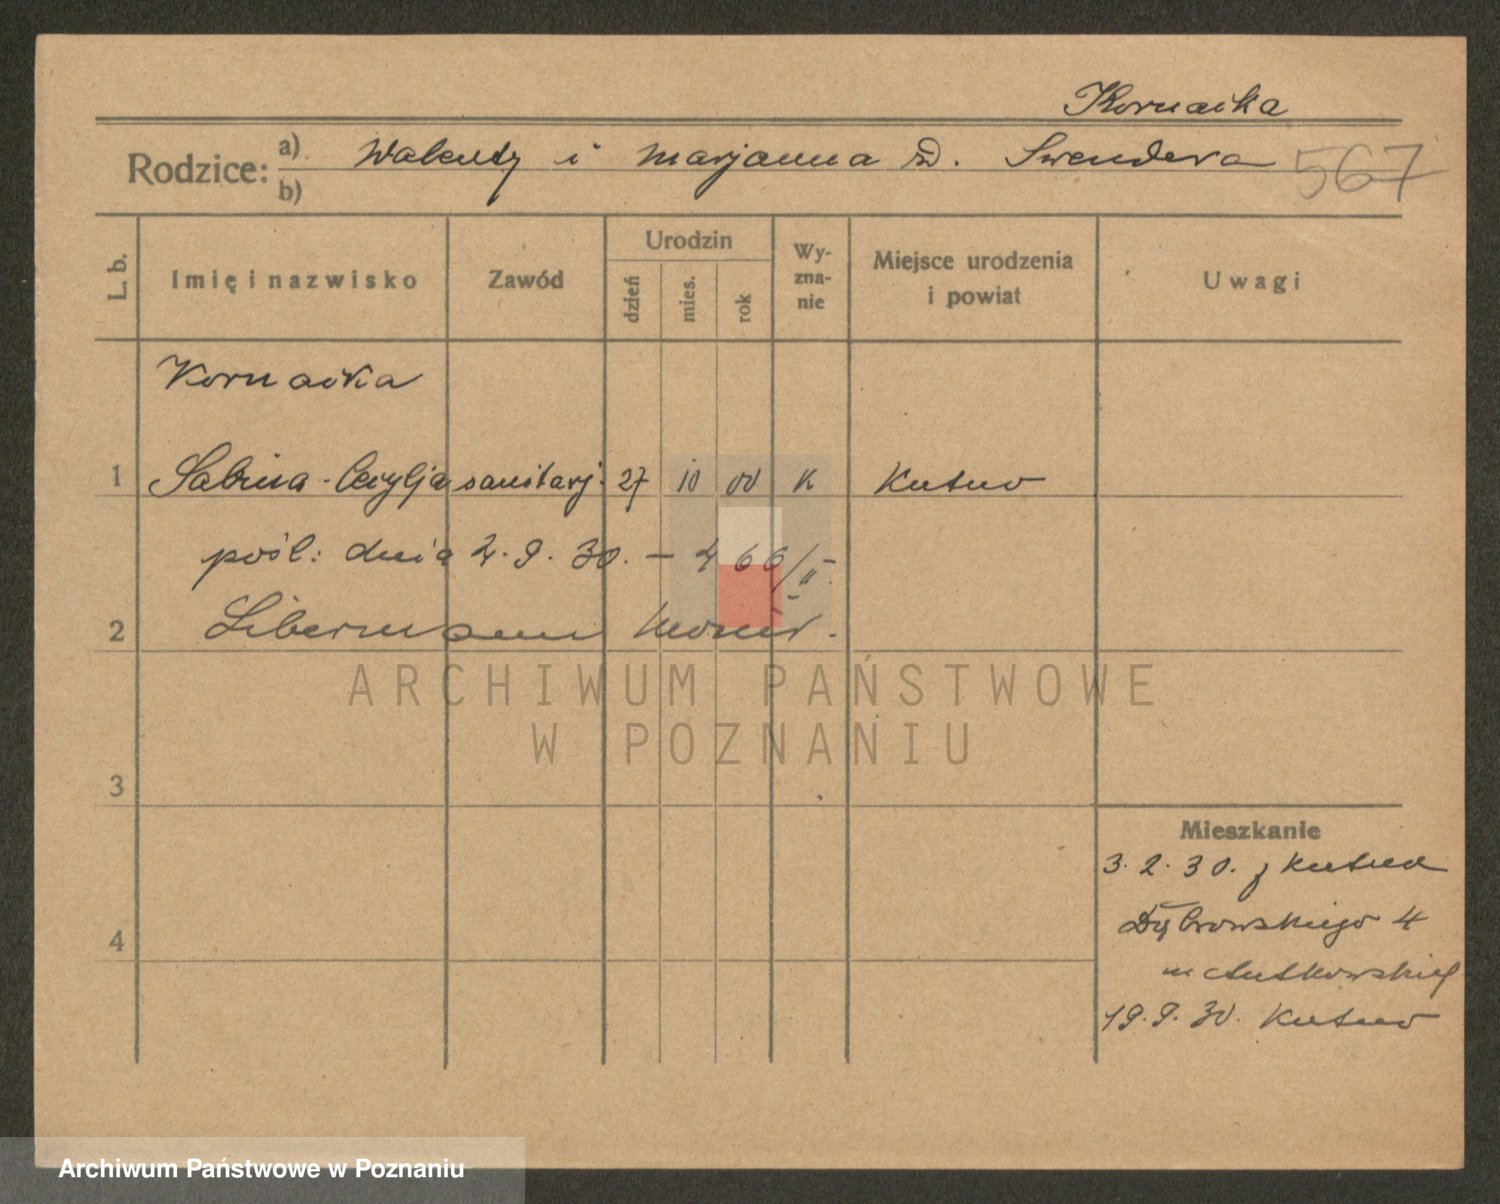 Kornacka
Rodzice: a) Walenty i Marjanna z d. Swendera 567
b)
L. b. Imię i nazwisko Zawód Urodzin dzień mies. rok Wy-zna-nie Miejsce urodzenia i powiat Uwagi
Kornacka
1 Sabina-Cecylja sanitarj. 27 10 00 K Kutno
pośl: dnia 2.9.30. – 466/II.
2 Libermann
3
Mieszkanie
3.2.30. z Kutna
4 Dąbrowskiego 4
19.9.30. Kutno
ARCHIWUM PAŃSTWOWE
W POZNANIU
Archiwum Państwowe w Poznaniu